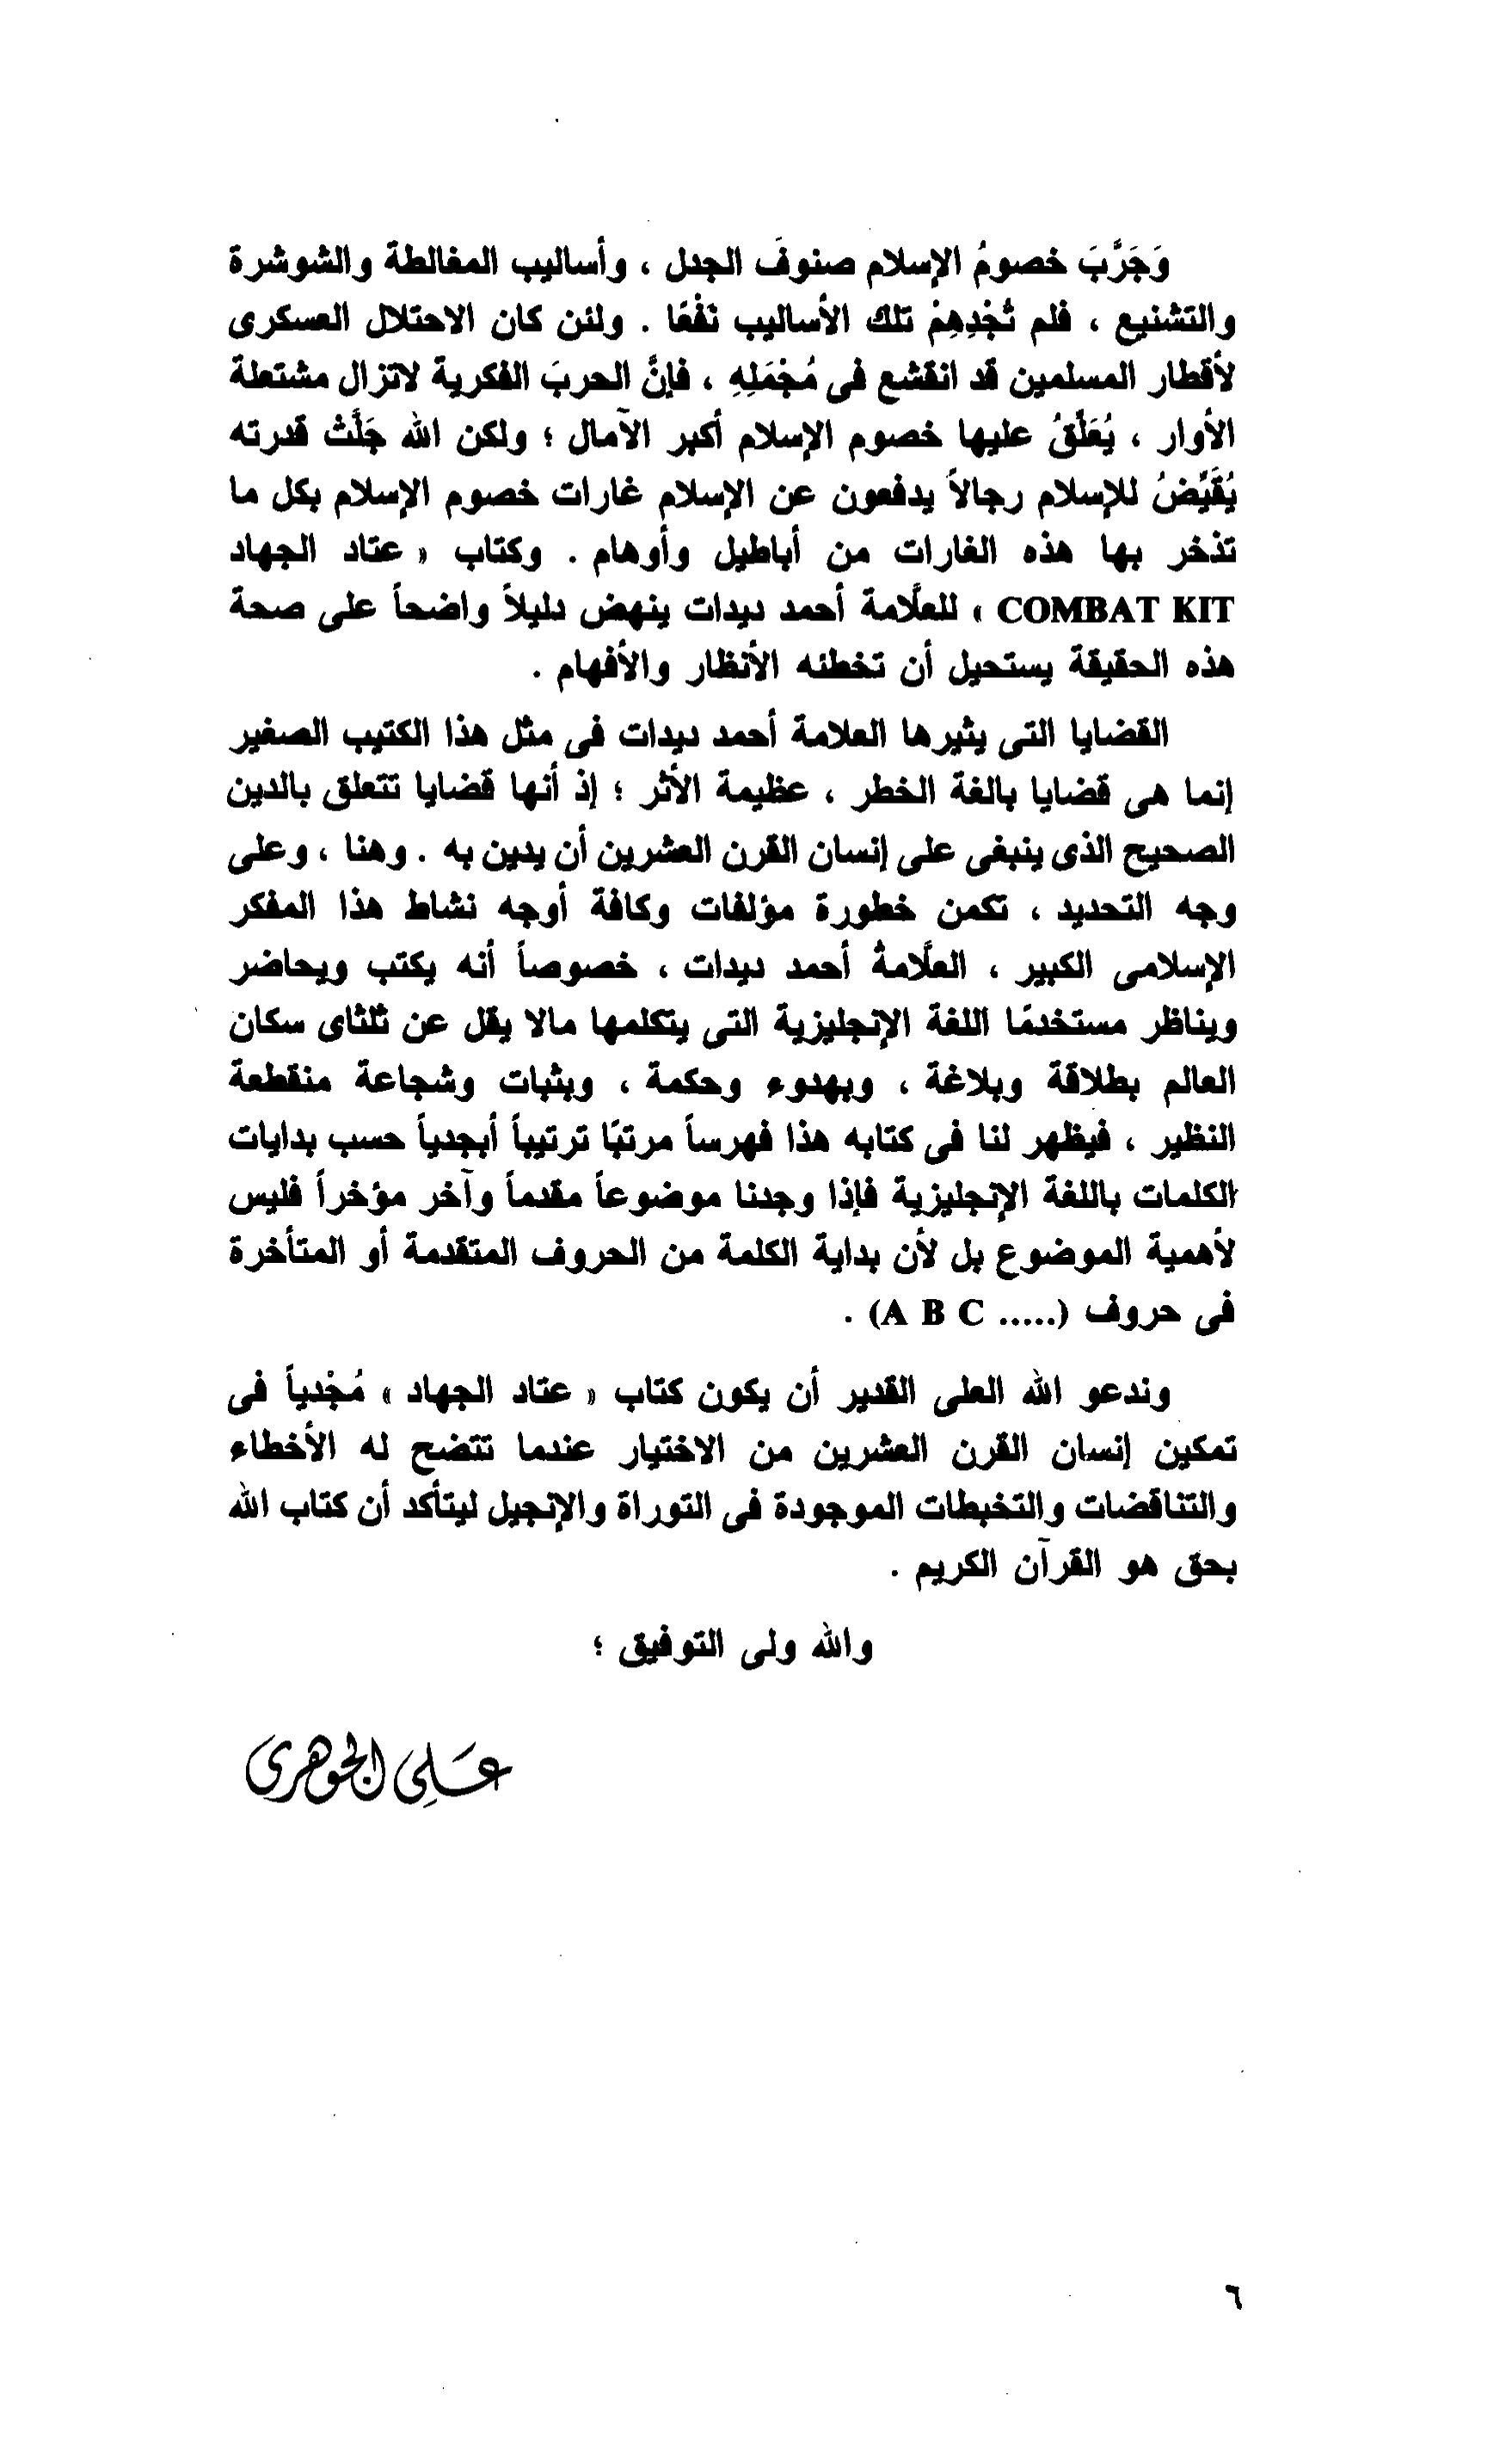 وَجَرَّبَ خصومُ الإسلام صنوفَ الجدل ، وأساليب المغالطة والشوشرة
والتشنيع ، فلم تُجْدِهِمْ تلك الأساليب نَفْعًا . ولئن كان الاحتلال العسكرى
لأقطار المسلمين قد انقشع فى مُجْمَلِهِ ، فإنَّ الحربَ الفكرية لاتزال مشتعلة
الأوار ، يُعَلِّقُ عليها خصوم الإسلام أكبر الآمال ؛ ولكن الله جَلَّتْ قدرته
يُقَيِّضُ للإسلام رجالاً يدفعون عن الإسلام غارات خصوم الإسلام بكل ما
تذخر بها هذه الغارات من أباطيل وأوهام . وكتاب « عتاد الجهاد
COMBAT KIT » للعلَّامة أحمد ديدات ينهض دليلاً واضحاً على صحة
هذه الحقيقة يستحيل أن تخطئه الأنظار والأفهام .
القضايا التى يثيرها العلامة أحمد ديدات فى مثل هذا الكتيب الصغير
إنما هى قضايا بالغة الخطر ، عظيمة الأثر ؛ إذ أنها قضايا تتعلق بالدين
الصحيح الذى ينبغى على إنسان القرن العشرين أن يدين به . وهنا ، وعلى
وجه التحديد ، تكمن خطورة مؤلفات وكافة أوجه نشاط هذا المفكر
الإسلامى الكبير ، العلَّامةُ أحمد ديدات ، خصوصاً أنه يكتب ويحاضر
ويناظر مستخدمًا اللغة الإنجليزية التى يتكلمها مالا يقل عن ثلثاى سكان
العالم بطلاقة وبلاغة ، وبهدوء وحكمة ، وبثبات وشجاعة منقطعة
النظير ، فيظهر لنا فى كتابه هذا فهرساً مرتبًا ترتيباً أبجدياً حسب بدايات
الكلمات باللغة الإنجليزية فإذا وجدنا موضوعاً مقدماً وآخر مؤخراً فليس
لأهمية الموضوع بل لأن بداية الكلمة من الحروف المتقدمة أو المتأخرة
فى حروف (A B C .....) .
وندعو الله العلى القدير أن يكون كتاب « عتاد الجهاد » مُجْدياً فى
تمكين إنسان القرن العشرين من الاختيار عندما تتضح له الأخطاء
والتناقضات والتخبطات الموجودة فى التوراة والإنجيل ليتأكد أن كتاب الله
بحق هو القرآن الكريم .
والله ولى التوفيق ؛
عَلى الجوهرى
٦